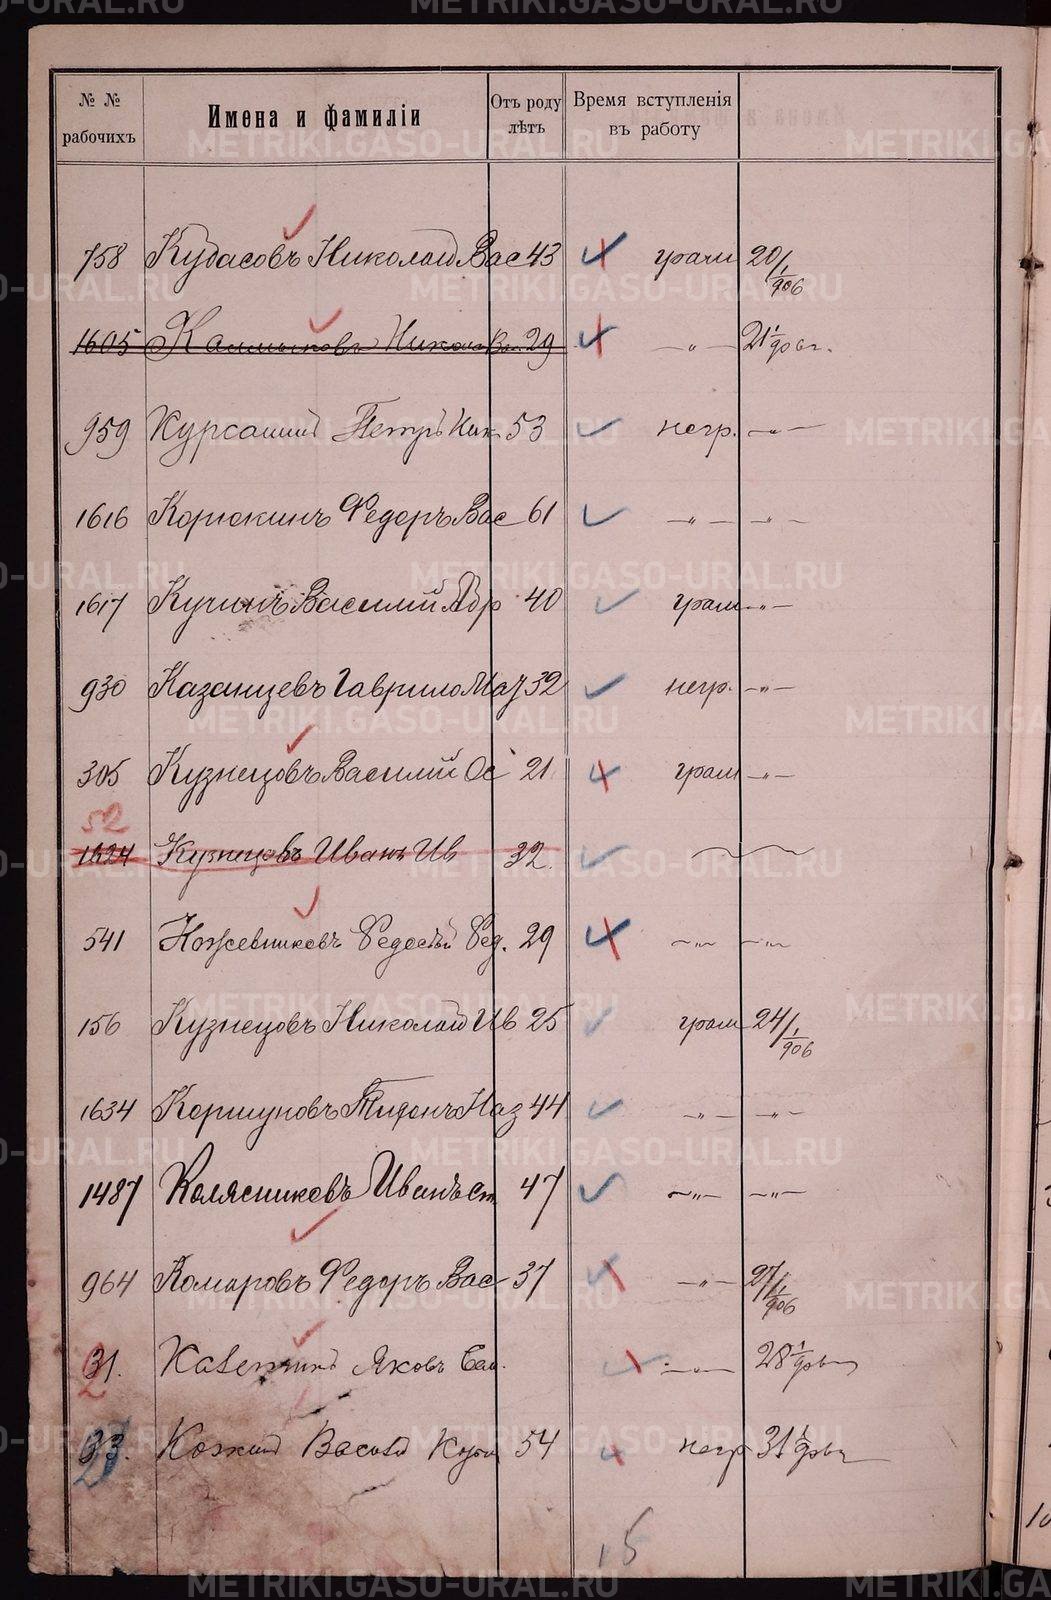 № № рабочихъ Имена и фамиліи Отъ роду лѣтъ Время вступленія въ работу
758 Кудасовъ Николай Вас 43 грам 20/1 906
1605 Калмыковъ Никола Вас 29 — " — 21 1/906 г.
959 Курсаши Петръ Ник 53 негр. — " —
1616 Корюкинъ Федоръ Вас 61 — " — — " —
1617 Кучинъ Василий Абр 40 грам — " —
930 Казанцевъ Гаврило 32 негр. — " —
305 Кузнецовъ Василий Ос 21 грам — " —
52
1624 Кузнецовъ Иванъ Ив 32
541 Кожевниковъ Федосѣй Фед. 29 — " — — " —
156 Кузнецовъ Николай Ив 25 грам 24/1 906
1634 Коршуновъ Тифонъ Наз 44 — " — — " —
1487 Колясниковъ Иванъ Ст 47 — " — — " —
964 Комаровъ Федоръ Вас 37 — " — 27/1 906
31. Яковъ — " — 28
33. 54 негр 31
15
METRIKI.GASO-URAL.RU